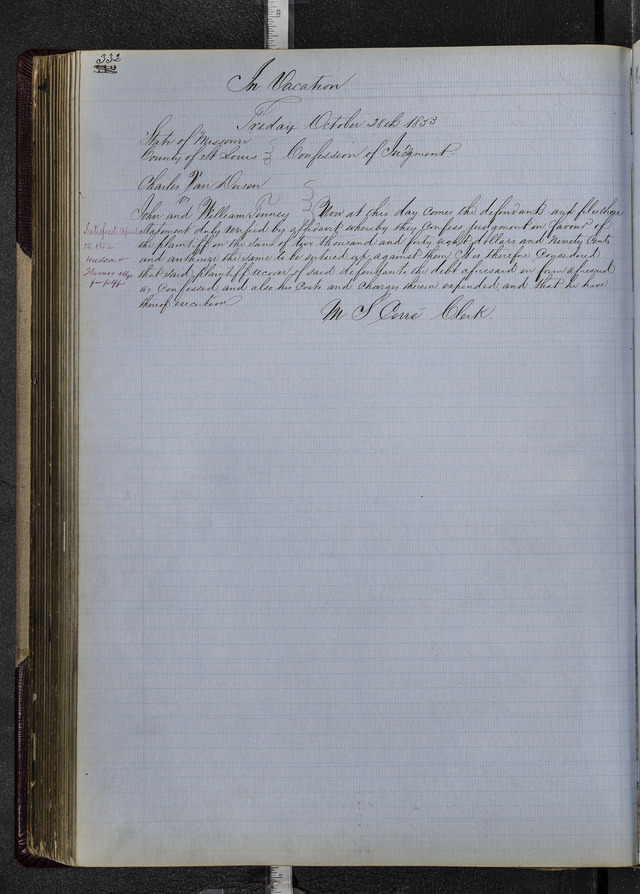 332
In Vacation
Friday October 28th 1853
State of Missouri
County of St Louis } Confession of Judgment
Charles Van Dusen
vs
John and William Finney } Now at this day comes the defendants and files their
Statement duly verified by affidavit whereby they Confess judgment in favour of
the plaintiff for the sum of two thousand and forty eight dollars and Ninety Cents
and authorize the same to be entered up against them It is therefore Considered
that said plaintiff recover of said defendants the debt aforesaid in form aforesaid
as Confessed and also his Costs and Charges herein expended and that he have
thereof execution
M S Cerré Clerk
Satisfied April
Hudson &
Holmes attys
for plff